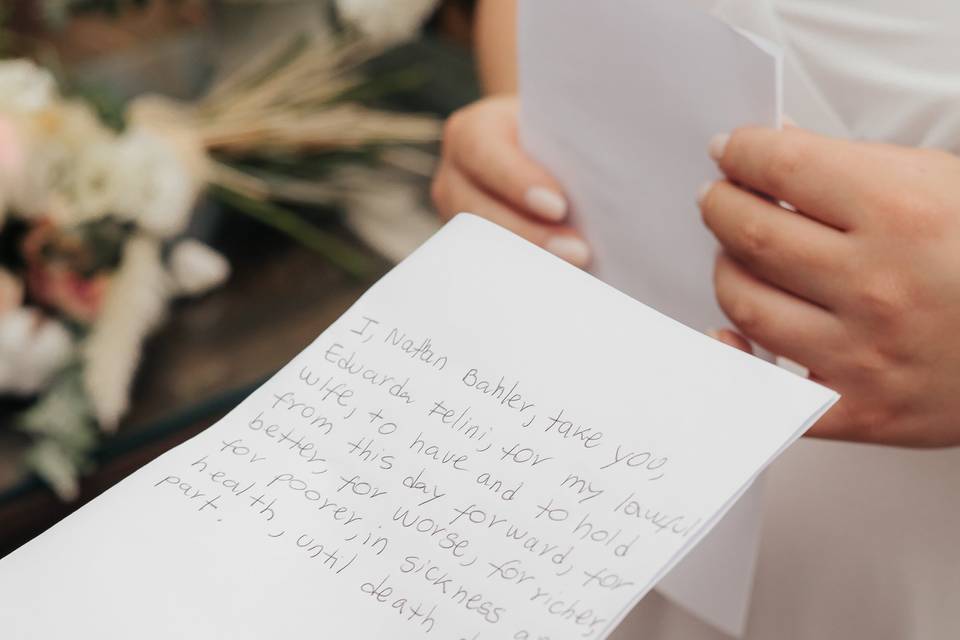 I, Nathan Bahler, take you,
Eduarda Felini, for my lawful
wife, to have and to hold
from this day forward, for
better, for worse, for richer,
for poorer, in sickness
health, until death
part.